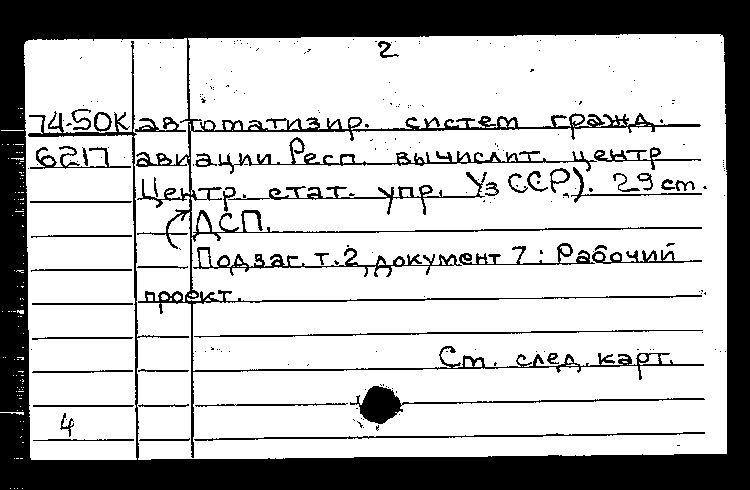 2
74-50К автоматизир. систем гражд.
6217 авиации. Респ. вычислит. центр
Центр. стат. упр. УзССР). 29 cm.
ДСП.
Подзаг. т.2, документ 7 : Рабочий
проект.
См. след. карт.
4